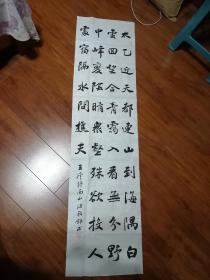 太乙近天都連山到海隅白
雲回望合青靄入看無分野
中峰變陰晴衆壑殊欲投人
處宿隔水問樵夫
王維終南山